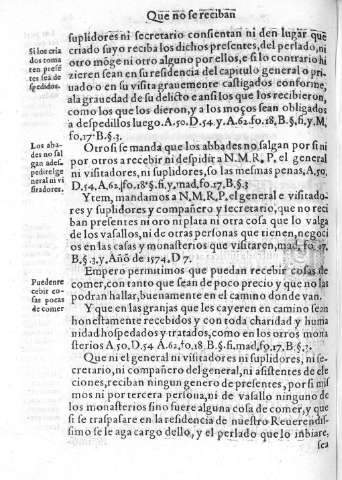 Que no se reciban
suplidores ni secretario consientan ni den lugar que
Si los cria
criado suyo reciba los dichos presentes, del perlado, ni
dos toma
otro mõge ni otro alguno por ellos, e si lo contrario hi
ten prese
zieren sean en su residencia del capitulo general o pri-
tes seã de
uado o en su visita grauemente castigados conforme,
spedidos.
a la grauedad de su delicto e ansi los que los recibieron,
como los que los dieron, y a los moços sean obligados
a despedillos luego. A. 50. D. 54. y. A. 62. fo. 18, B. §, fi, y. M,
fo, 17. B. §. 3.
Los aba-
Otro si se manda que los abbades no salgan por si ni
des no sal
por otros a recebir ni despidir a N. M. R. P, el general
gan a des-
pedir el ge
ni visitadores, ni suplidores, so las mesmas penas, A. 50.
neral ni vi
D. 54, A, 62, fo. 18. §. fi, y, mad, fo, 17, B, §. 3
sitadores.
Ytem, mandamos a N. M, R, P, el general e visitado-
res y suplidores y compañero y secretario, que no reci
ban presentes ni oro ni plata ni otra cosa que lo valga
de los vasallos, ni de otras personas que tienen, negoci
os en las casas y monasterios que visitaren, mad, fo. 17.
B, §. 3, y, Año de 1574. D 7.
Puedenre
Empero permitimos que puedan recebir cosas de
cebir co-
comer, con tanto que sean de poco precio y que no las
sas pocas
podran hallar, buenamente en el camino donde van.
de comer
Y que en las granjas que les cayeren en camino sean
honestamente recebidos y con toda charidad y huma
nidad hospedados y tratados, como en los otros mona
sterios A. 50, D. 54 A. 62, fo, 18, B, §. fi. mad, fo, 17. B, §. 3.
Que ni el general ni visitadores ni suplidores, ni se-
cretario, ni compañero del general, ni asistentes de ele
ciones, reciban ningun genero de presentes, por si mis
mos ni por tercera persona, ni de vasallo ninguno de
los monasterios sino fuere alguna cosa de comer, y que
si se traspasare en la residencia de nuestro Reuerendis-
simo se le aga cargo dello, y el perlado que lo inbiare,
sea